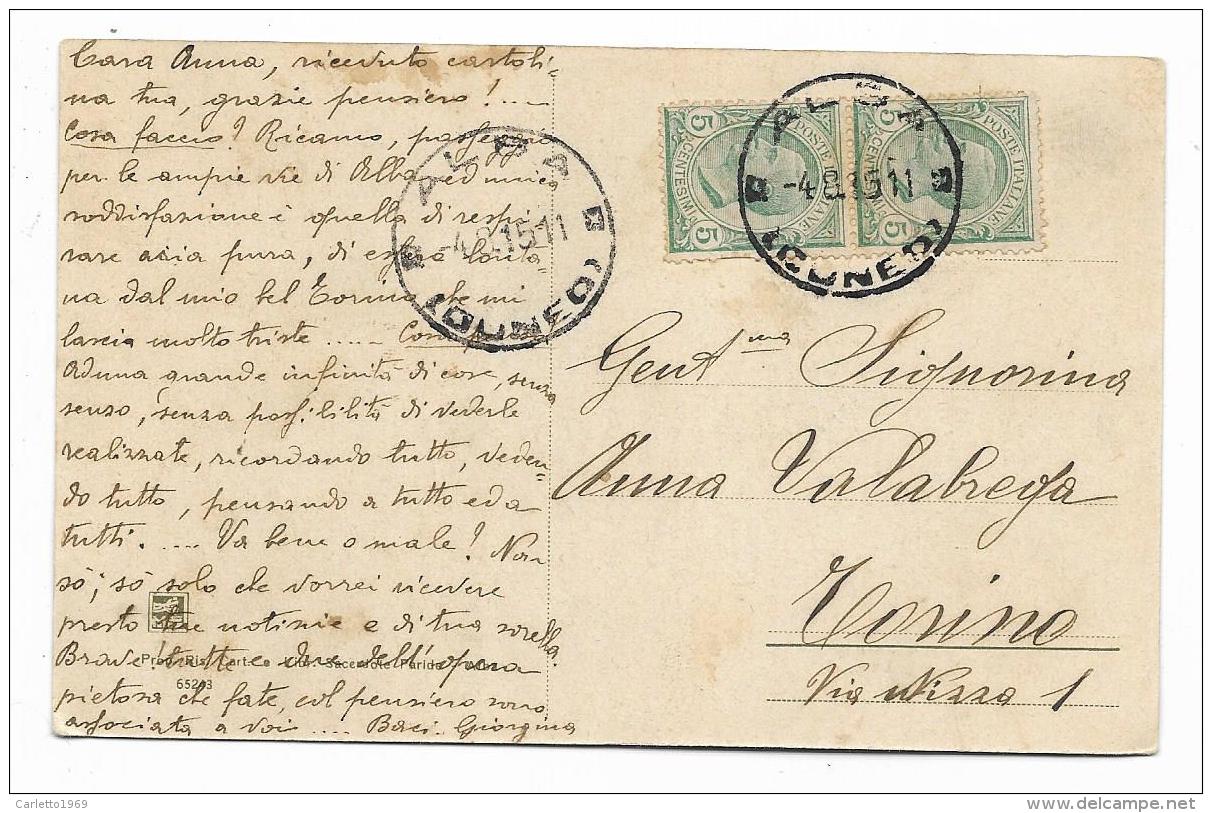 Cara Anna, ricevuto cartoli=
na tua, grazie pensiero!....
Cosa faccio? Ricamo, passeggio
per le ampie vie di Alba ed unica
soddisfazione è quella di respi
rare aria pura, di esser lonta-
na dal mio bel Torino che mi
lascia molto triste ..... Cosa
Ad una grande infinità di cose, senza
senso, senza possibilità di vederle
realizzate, ricordando tutto, veden=
do tutto, pensando a tutto ed a
tutti. .... Va bene o male? Non
sò; sò solo che vorrei ricevere
presto tue notizie e di tua sorella.
Brave! tutte e due dell'opera
pietosa che fate, col pensiero sono
associata a voi .... Baci. Giorgina
65243
ALBA
-4.8.15 11
(CUNEO)
5 CENTESIMI 5
POSTE ITALIANE
5 CENTESIMI 5
POSTE ITALIANE
ALBA
-4.8.15 11
(CUNEO)
Gent ma Signorina
Anna Valabrega
Torino
Via Nizza 1
Carletto1969
www.delcampe.net